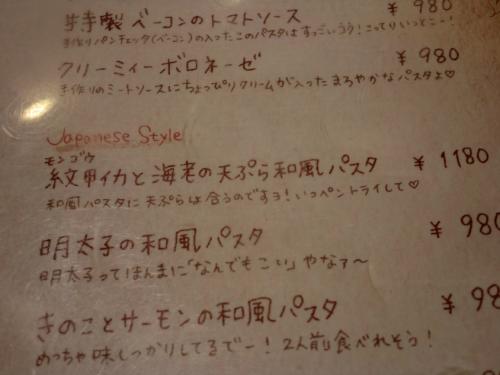 特製 ベーコンのトマトソース ¥ 980
手作りパンチェッタ(ベーコン)の入ったこのパスタはすっごいうう! こってりいっとこー!
クリーミィーボロネーゼ ¥ 980
手作りのミートソースにちょっぴりクリームが入ったまろやかなパスタよ♡
Japanese Style
モンゴウ
紋甲イカと海老の天ぷら和風パスタ ¥ 1180
和風パスタに天ぷらは合うのですヨ! いっぺントライして♡
明太子の和風パスタ ¥ 980
明太子ってほんまに「なんでもこい」やなァ〜
きのことサーモンの和風パスタ ¥ 98
めっちゃ味しっかりしてるでー! 2人前食べれそう!
¥